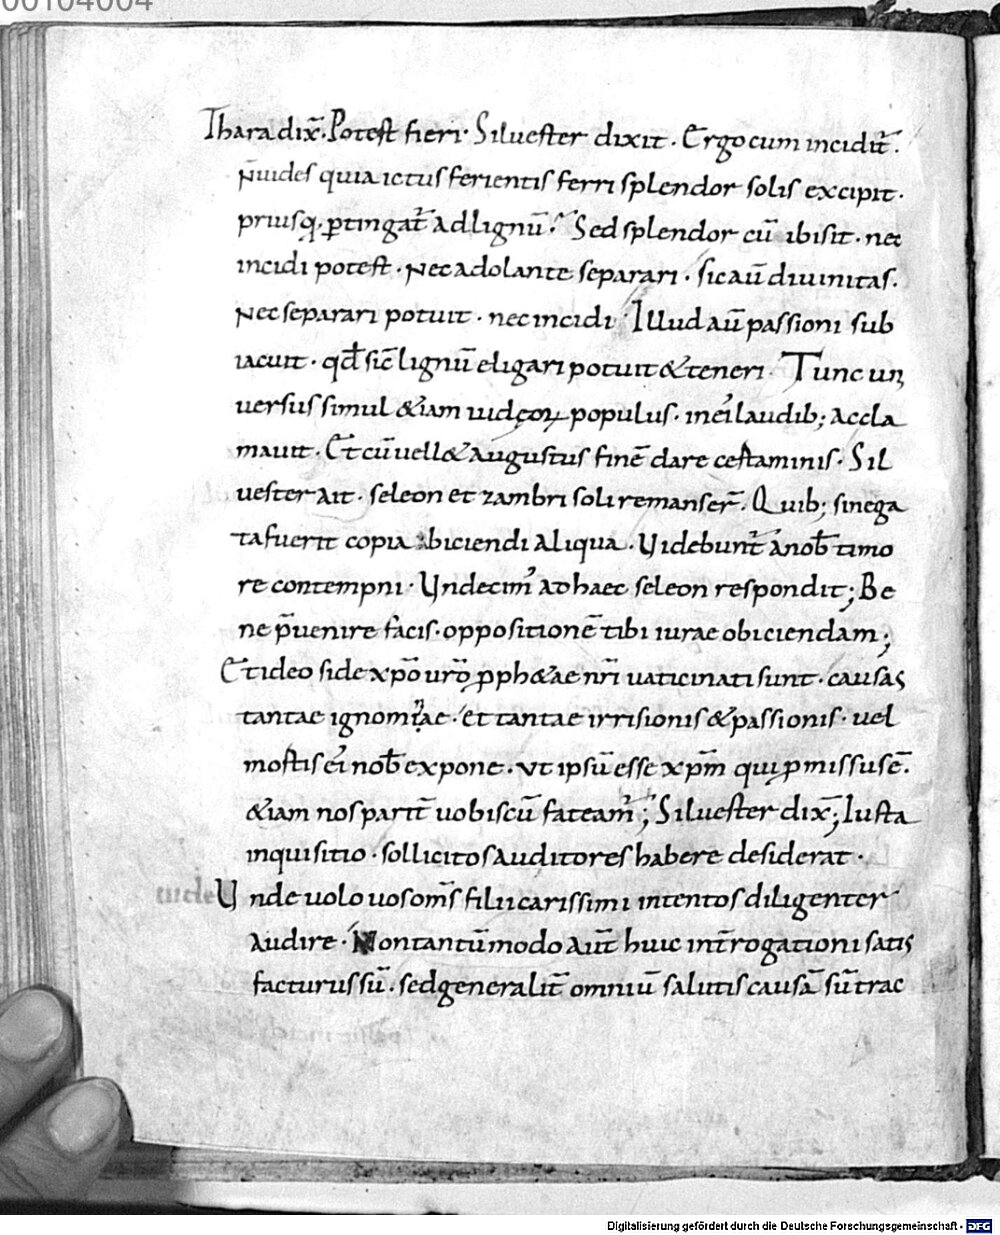 00104004
Thara dix̅. Potest fieri. Siluester dixit. Ergo cum incidit̅.
N̅uides quia ictus ferientis ferri splendor solis excipit.
priusq. ꝑtingat̅ ad lignu̅. Sed splendor cu̅ ibi sit. nec
incidi potest. Nec a dolante separari. sic au̅ diuinitas.
Nec separari potuit. nec incidi. Illud au̅ passioni sub
iacuit. qd̅ sic̅ lignu̅ eligari potuit & teneri. Tunc uni
uersus simul &iam iudęoꝝ populus. in ei laudib; accla
mauit. Et cu̅ uell& augustus fine̅ dare certaminis. Sil
uester ait. seleon et zambri soli remanser̅. Quib; si nega
ta fuerit copia obiciendi aliqua. Uidebunt̅ a nob̅ timo
re contempni. Undecim᾽ ad haec seleon respondit; Be
ne p̅uenire facis. oppositione̅ tibi iurae obiciendam;
Et ideo si de xp̅o ur̅o ꝓph&ae nr̅i uaticinati sunt. causas
tantae ignominiae. et tantae irrisionis & passionis. uel
mostis ei nob̅ expone. Ut ipsu̅ esse xp̅m qui ꝓmissus e̅.
&iam nos parit̅ uobiscu̅ fateam᾽; Siluester dix̅; Iusta
inquisitio. sollicitos auditores habere desiderat.
Unde uolo uos om̅s filii carissimi intentos diligenter
audire. Non tantu̅modo aut̅ huic int̅rogationi satis
facturus su̅. sed generalit̅ omniu̅ salutis causa̅ su̅ trac
Digitalisierung gefördert durch die Deutsche Forschungsgemeinschaft - DFG